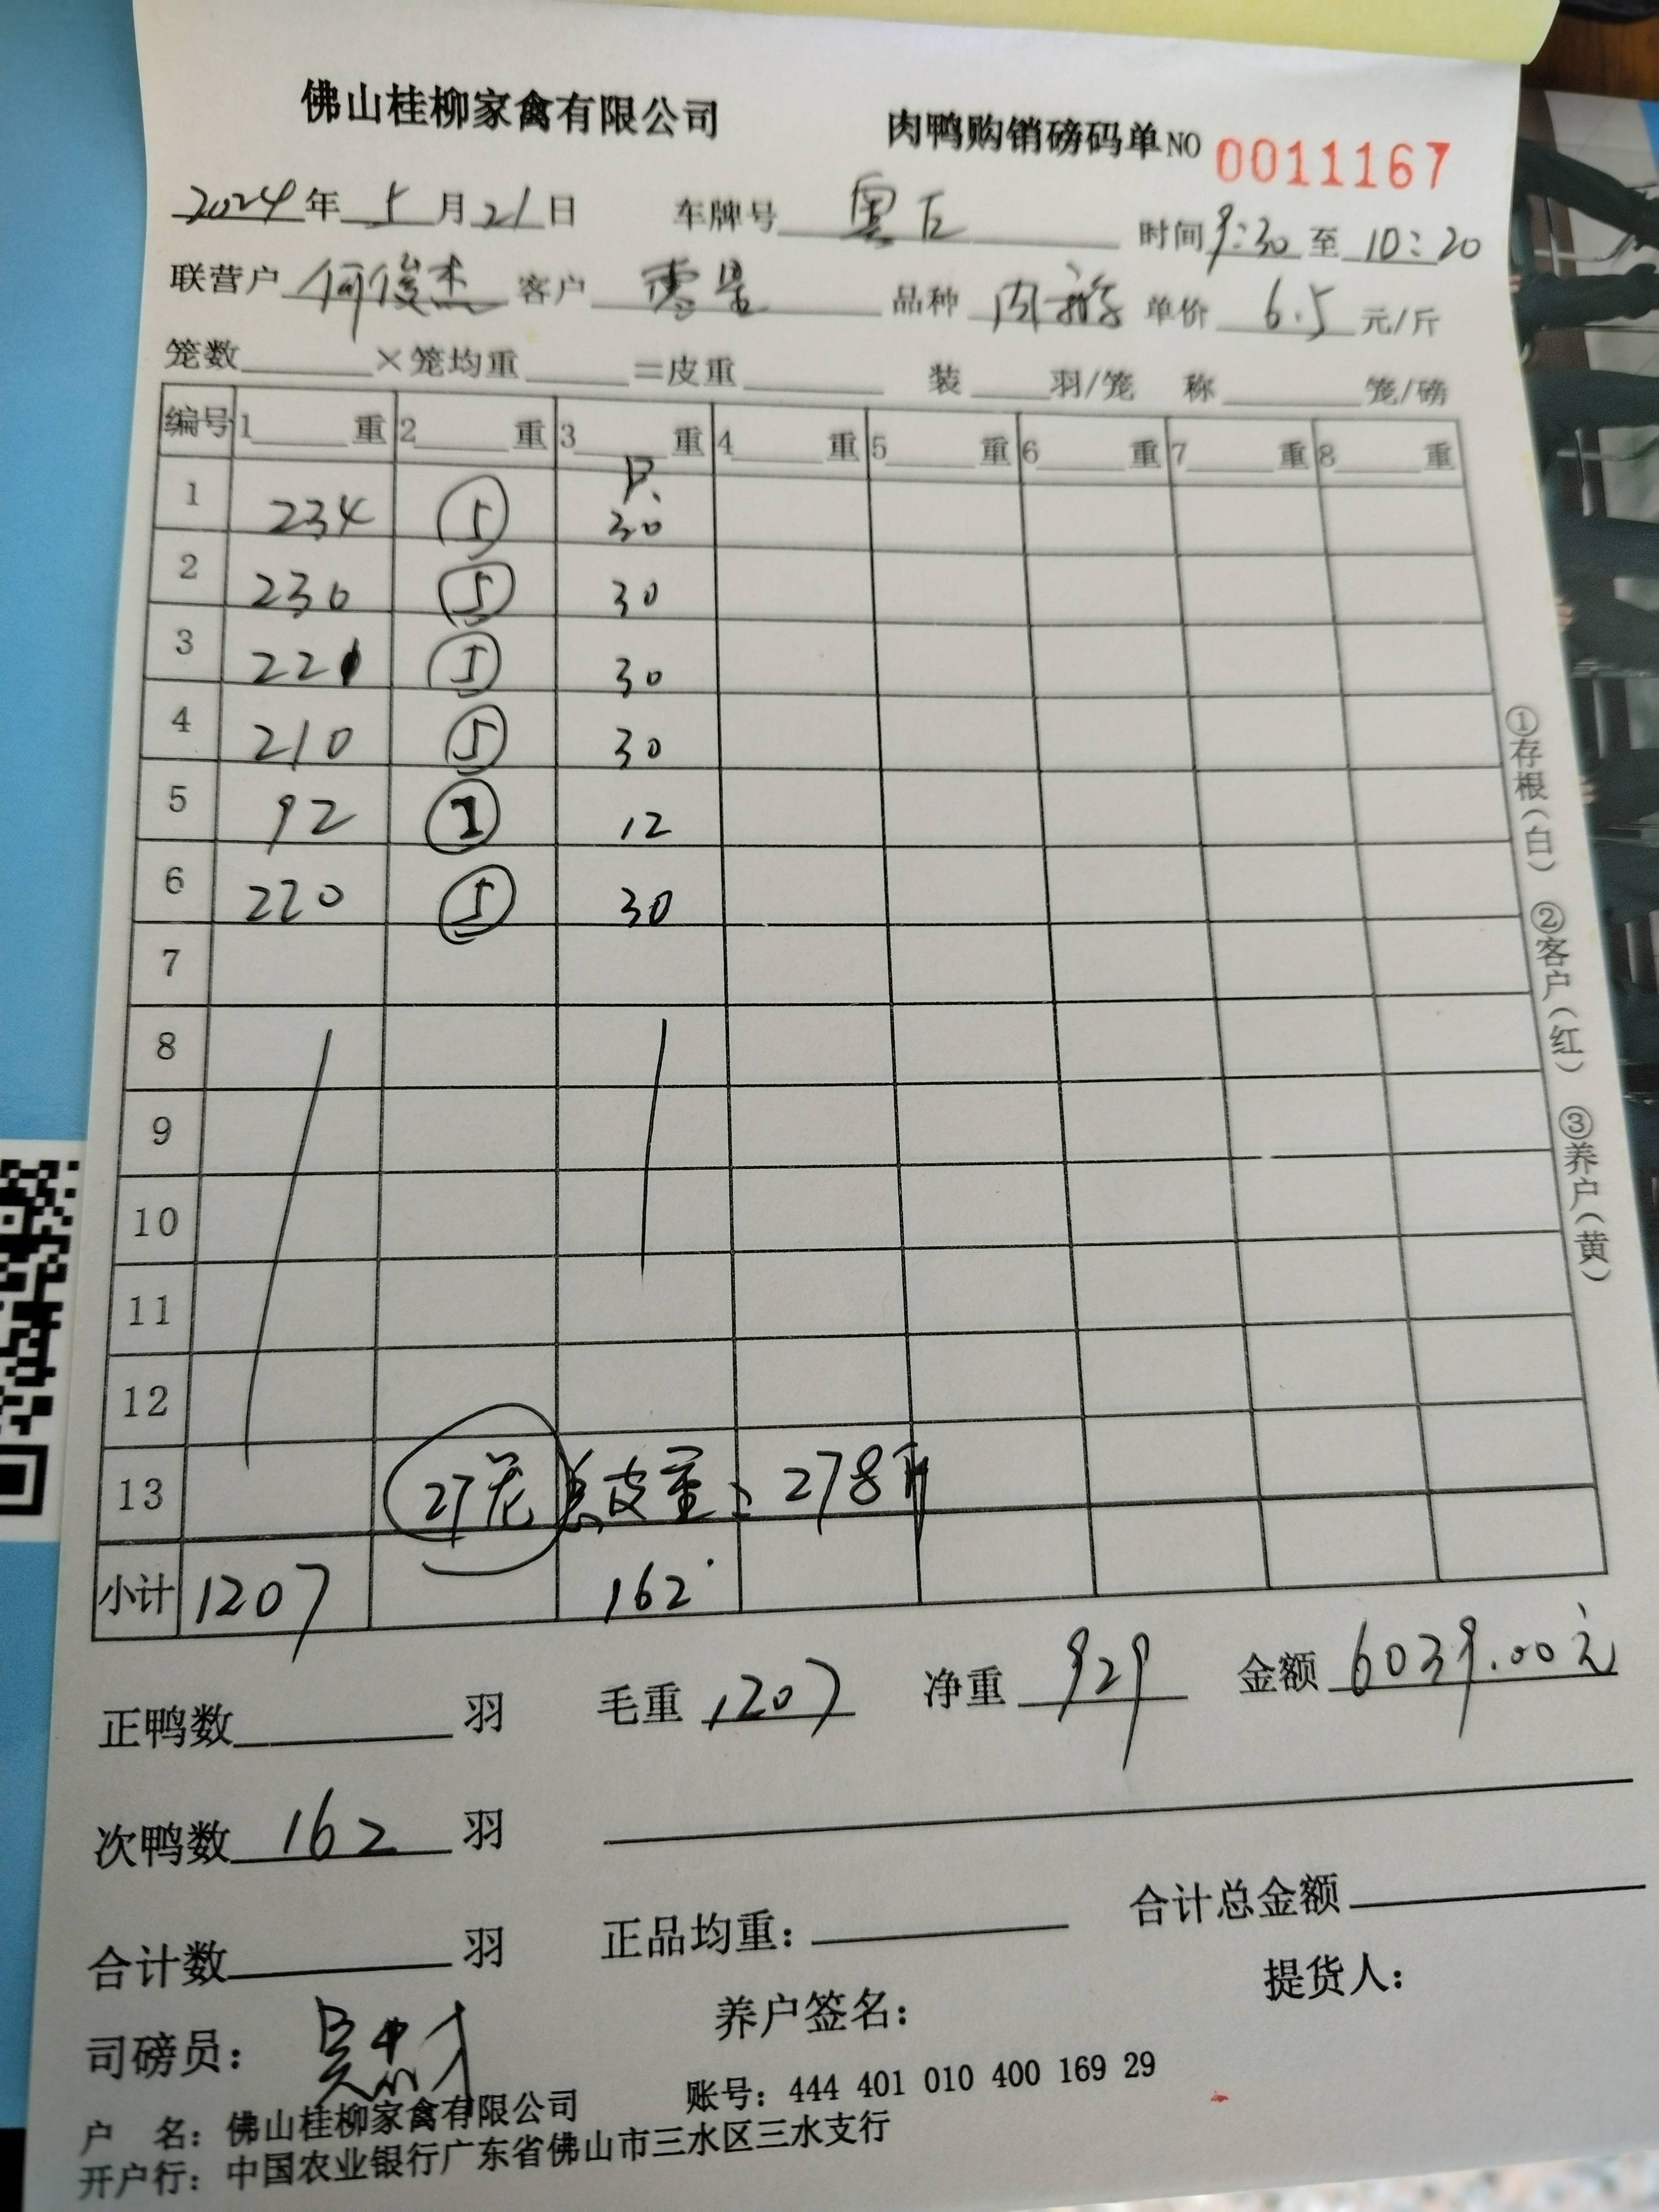 佛山桂柳家禽有限公司 肉鸭购销磅码单NO 0011167
2024年5月21日 车牌号 时间9:30至10:20
联营户 何俊杰 客户 零星 品种 肉 单价 6.5 元/斤
笼数 ×笼均重 =皮重 装 羽/笼 称 笼/磅
编号 1 重 2 重 3 重 4 重 5 重 6 重 7 重 8 重
1 234 ⑤ 30
2 230 ⑤ 30
3 221 ⑤ 30
4 210 ⑤ 30
5 92 12
6 220 ⑤ 30
7
8
9
10
11
12
13 27笼 总皮重:278斤
小计 1207 162
正鸭数 羽 毛重 1207 净重 929 金额 6039.00元
次鸭数 162 羽
合计数 羽 正品均重: 合计总金额
司磅员: 养户签名: 提货人:
户 名:佛山桂柳家禽有限公司 账号:444 401 010 400 169 29
开户行:中国农业银行广东省佛山市三水区三水支行
①存根(白) ②客户(红) ③养户(黄)